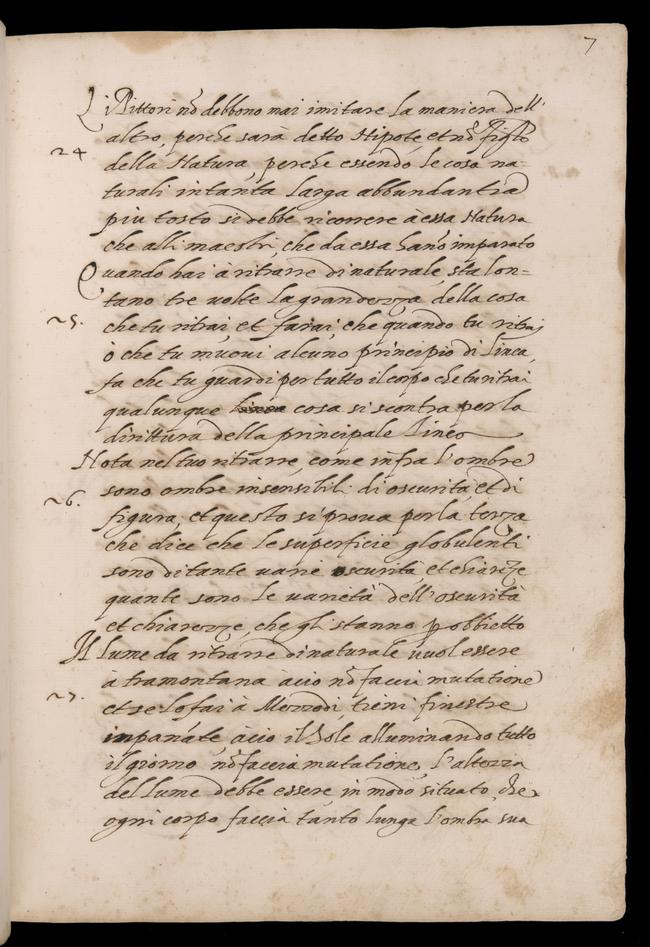 7
Li Pittori nõ debbono mai imitare la maniera dell'
altro, perche sarà detto Nipote, et nõ figlo
24
della Natura, perche essendo le cose na-
turali in tanta larga abbundantia
piu tosto si debbe ricorrere a essa Natura
che alli maestri, che da essa hano imparato
Quando hai à ritrarre di naturale, sta lon-
tano tre volte la grandezza della cosa
25.
che tu ritrai, et farai, che quando tu ritrai
ò che tu muoui alcuno principio di linea,
fa che tu guardi per tutto il corpo che tu ritrai
qualunque cosa si scontra per la
dirittura della principale linea
Nota nel tuo ritrarre, come infra l'ombre
sono ombre insensibili di oscurità, et di
26.
figura, et questo si proua per la terza
che dice che le superficie globulenti
sono di tante varie oscurità et chiarezze
quante sono le varietà dell'oscurità
et chiarezze, che gli stanno p obbietto
Il lume da ritrarre di naturale vuol essere
à tramontana, àcio nõ faccia mutatione
27.
et se lo fai à Mezzodi, tieni finestre
impanate, àcio il Sole alluminando tutto
il giorno nõ faccia mutatione, l'altezza
del lume debbe essere in modo situato, che
ogni corpo faccia tanto lunga l'ombra sua